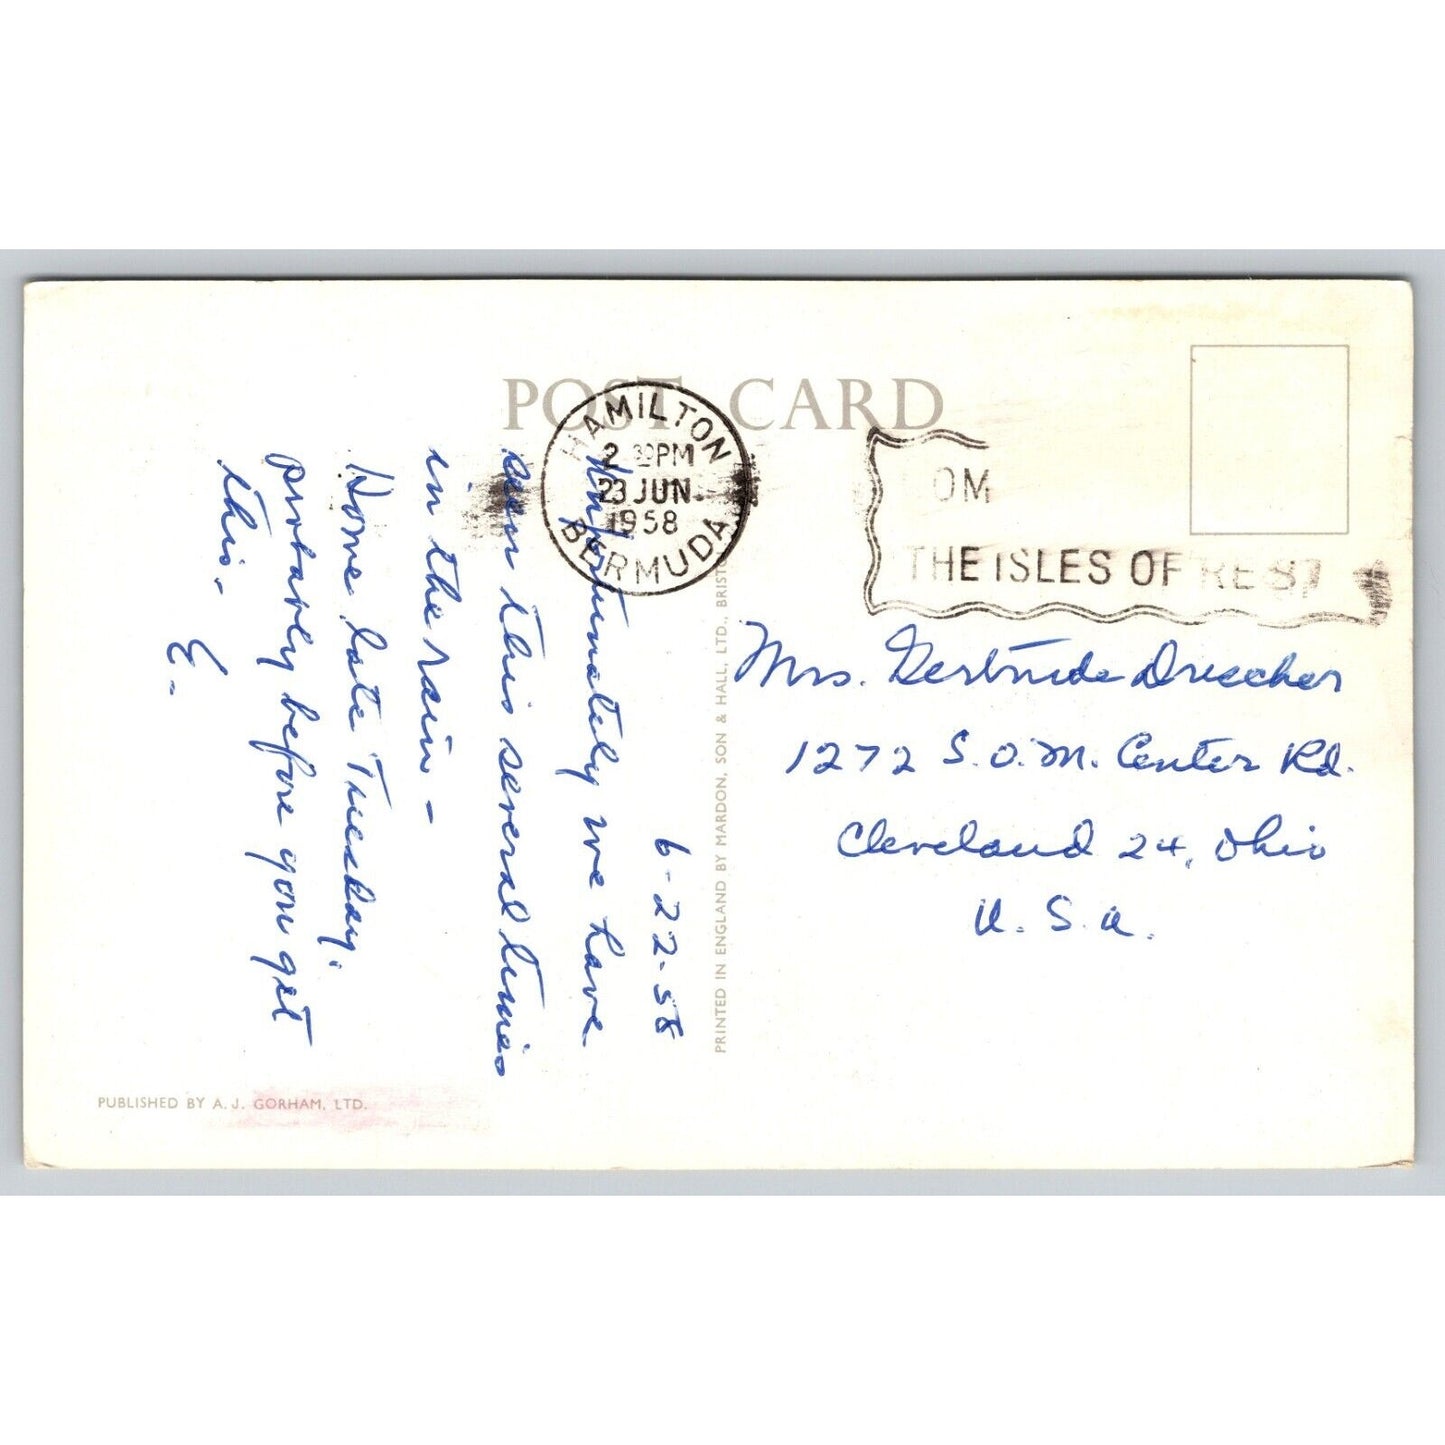 POST CARD
HAMILTON
2 30PM
23 JUN.
1958
BERMUDA
OM
THE ISLES OF REST
6-22-58
Unfortunately we have
seen this several times
in the rain -
Home late Tuesday.
probably before you get
this -
E -
PRINTED IN ENGLAND BY MARDON, SON & HALL, LTD., BRISTO
Mrs. Gertrude Drescher
1272 S.O.M. Center Rd.
Cleveland 24, Ohio
U. S. A.
PUBLISHED BY A. J. GORHAM, LTD.